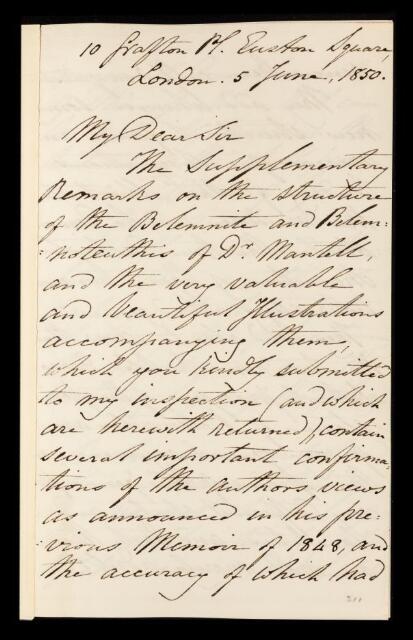 10 Grafton Pl. Euston Square,
London. 5 June, 1850.
My Dear Sir
The Supplementary
Remarks on the structure
of the Belemnite and Belem:
:noteuthis of Dr Mantell,
and the very valuable
and beautiful Illustrations
accompanying them,
which you kindly submitted
to my inspection (and which
are herewith returned), contain
several important confirma:
:tions of the authors views
as announced in his pre:
:vious Memoir of 1848, and
the accuracy of which had